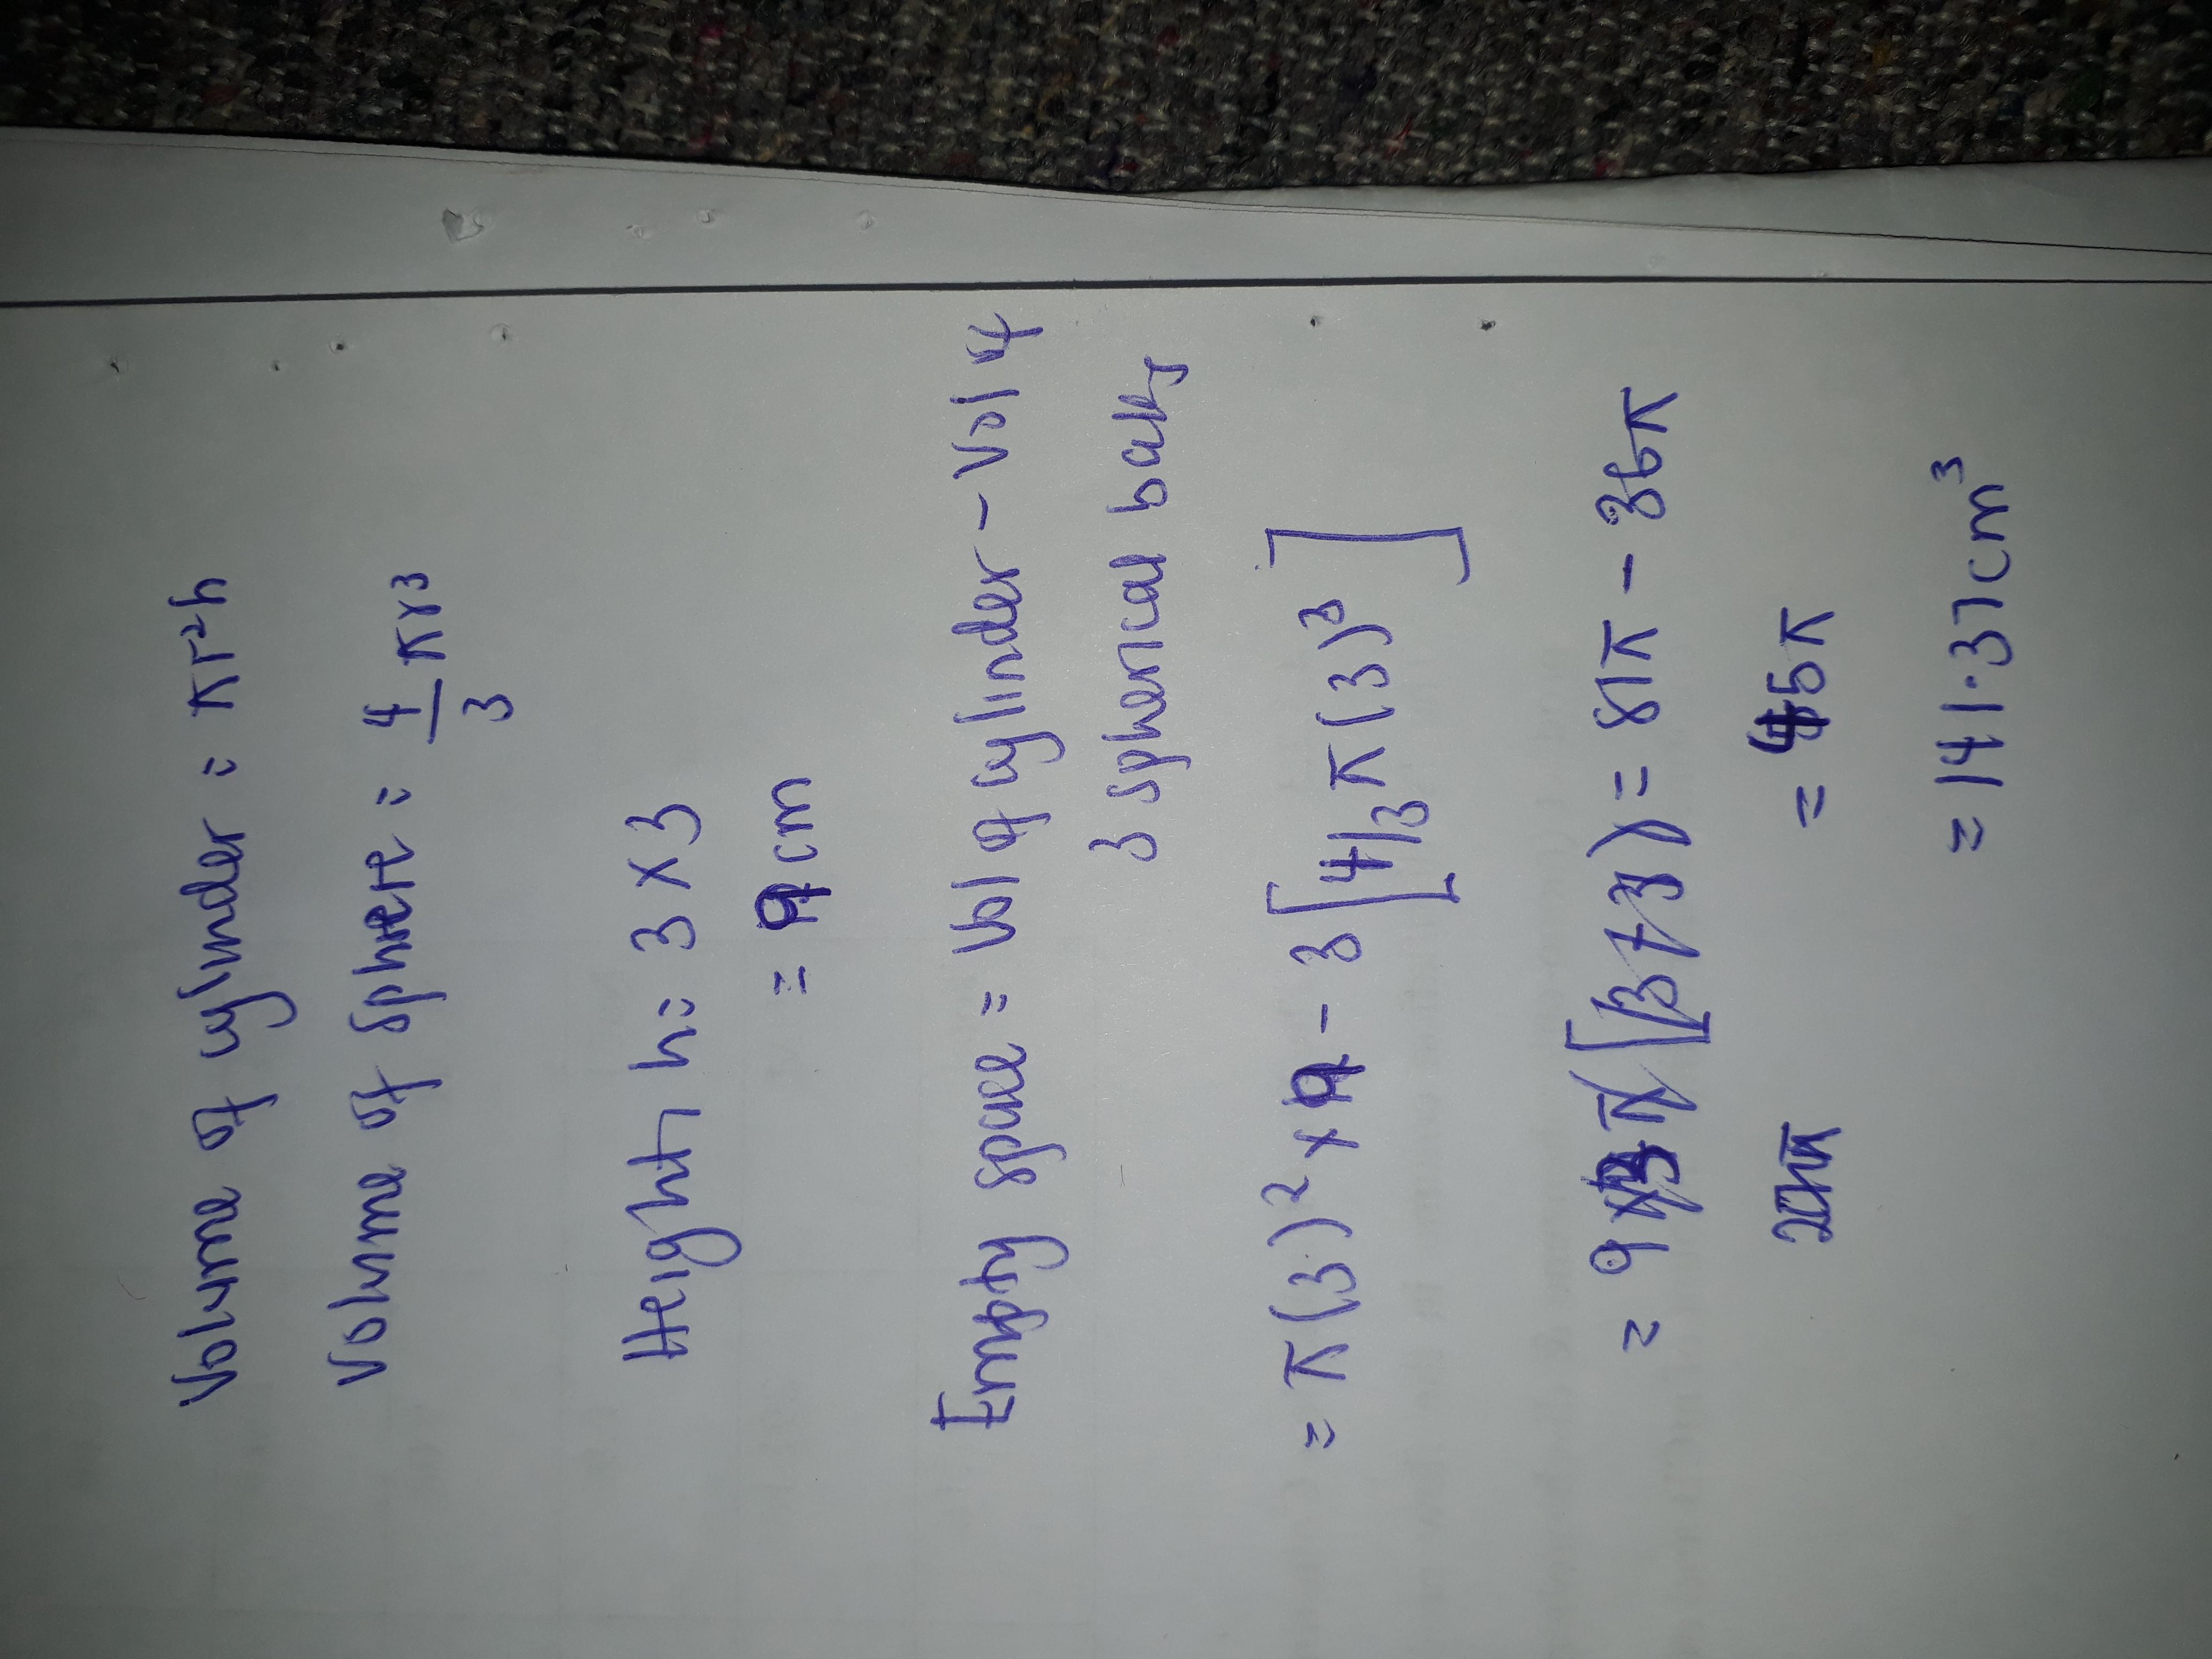 Volume of cylinder = πr²h
Volume of sphere = 4/3 πr³
Height h = 3 × 3
= 9cm
Empty space = Vol of cylinder - Vol of
3 spherical balls
= π(3)² × 9 - 3[4/3 π(3)³]
= 9 π[3 + 3) = 81π - 36π
= 45π
= 141.37cm³